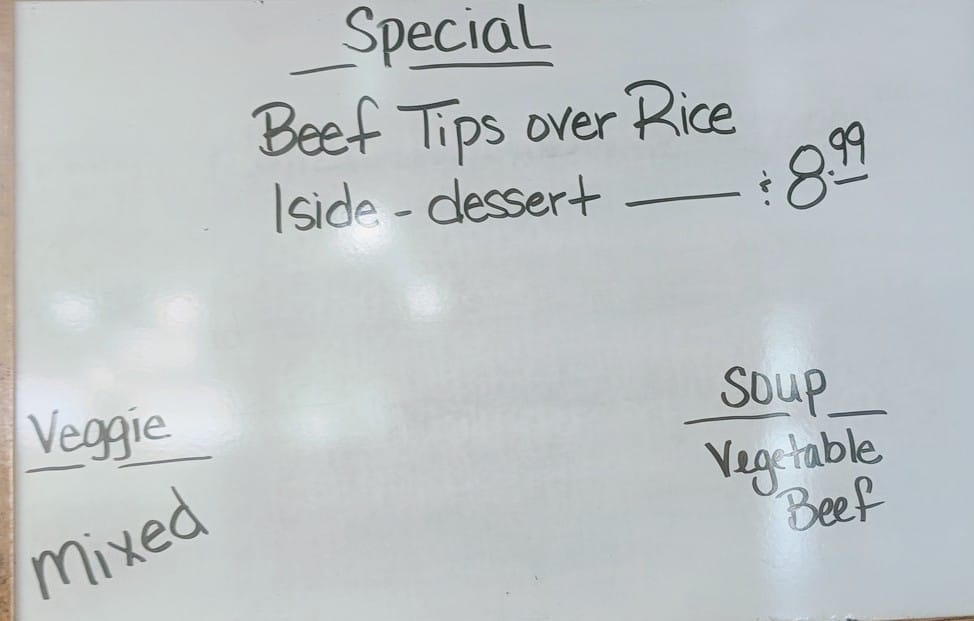 Special
Beef Tips over Rice
1side - dessert — $8.99
Veggie
mixed
Soup
Vegetable
Beef